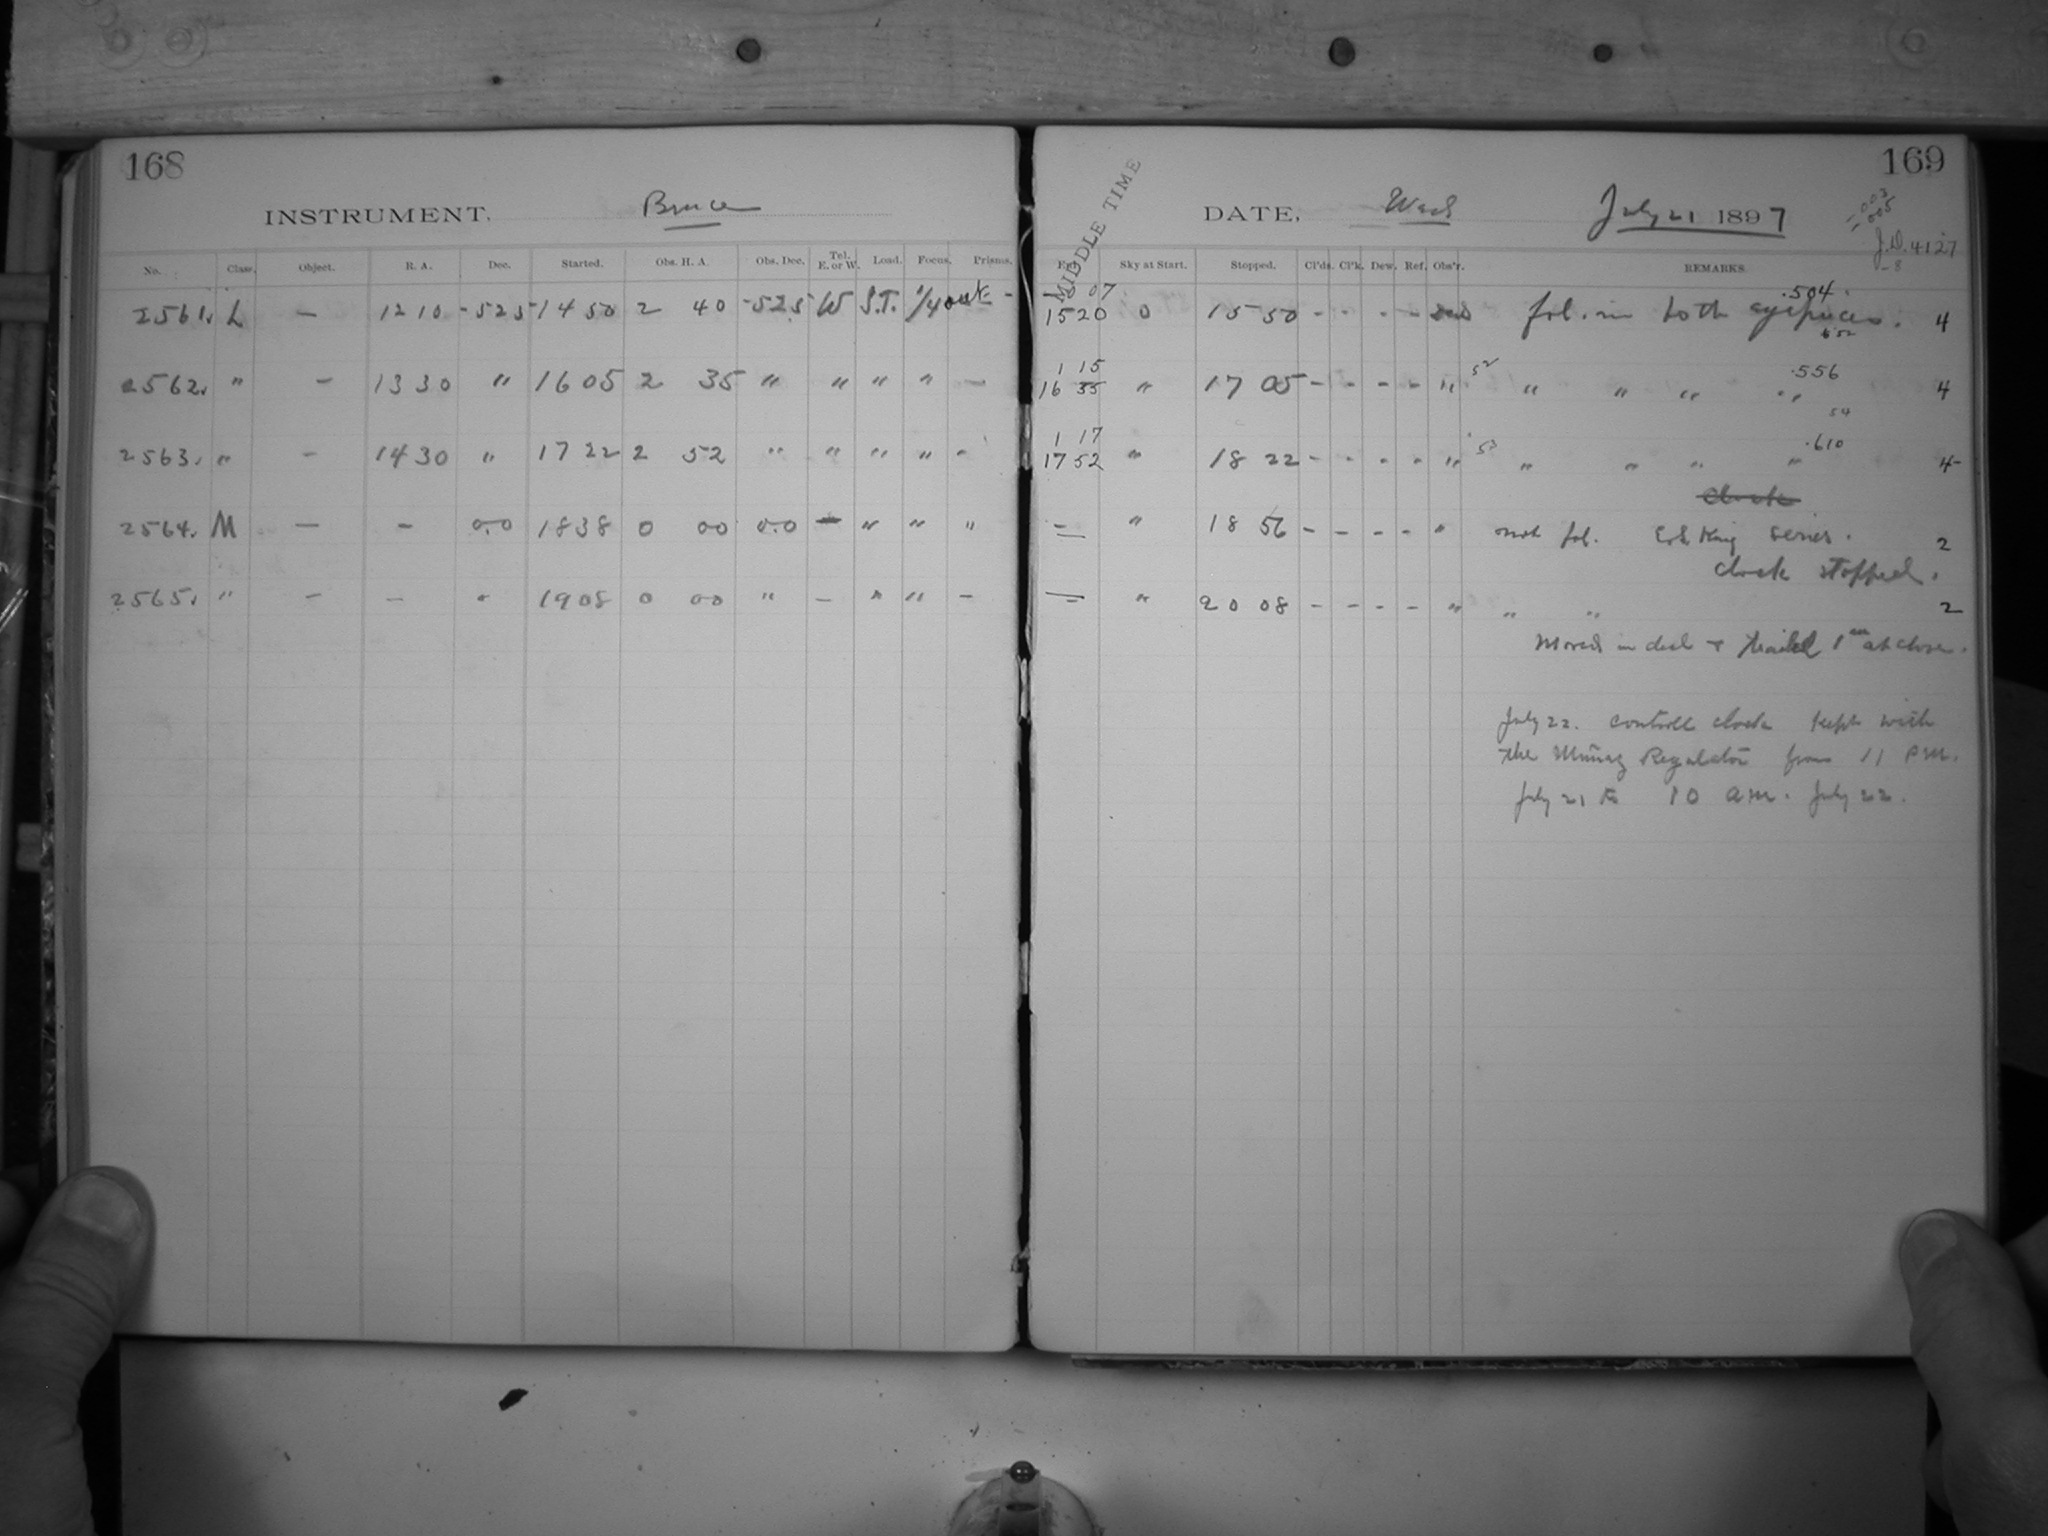 168
INSTRUMENT. Bruce
No. Class. Object. R. A. Dec. Started. Obs. H. A. Obs. Dec. Tel. E. or W. Load. Focus. Prisms.
2561. L — 12 10 -52.5 14 50 2 40 -52.5 W S.T. 1/4 out -
2562. " - 13 30 " 16 05 2 35 " " " " -
2563. " - 14 30 " 17 22 2 52 " " " " -
2564. M — - 0.0 18 38 0 00 0.0 - " " "
2565. " - - " 19 08 0 00 " - " " -
169
MIDDLE TIME
DATE. Wed July 21 1897
.003
.005
J.D. 4127
-8
Exp. Sky at Start. Stopped. Cl'ds. Cl'k. Dew. Ref. Obs'r. REMARKS.
07 .504
15 20 0 15 50 - - - - fol. in both eyepieces. 4
52
1 15 52 .556
16 35 " 17 05 - - - - " " " " " 4
54
1 17 53 .610
17 52 " 18 22 - - - - " " " " " 4
clock
— " 18 56 - - - - " not fol. E.S. King series. 2
clock stopped.
— " 20 08 - - - - " " " 2
Moved in decl & trailed 1m at close.
July 22. controll clock kept with
the Mining Regulator from 11 P.M.
July 21 to 10 a.m. July 22.